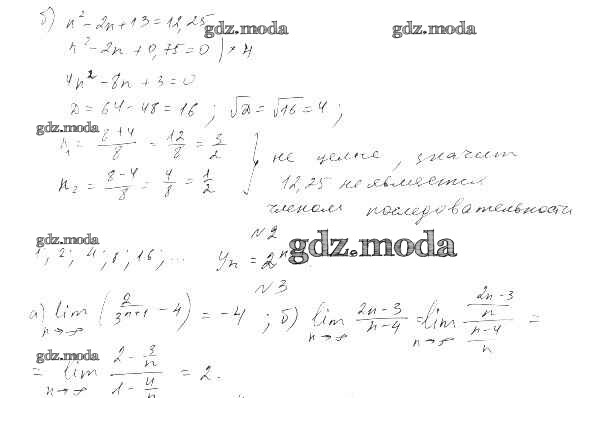 б) n² - 2n + 13 = 12,25
gdz.moda gdz.moda
n² - 2n + 0,75 = 0 ) × 4
4n² - 8n + 3 = 0
D = 64 - 48 = 16 ; √D = √16 = 4 ;
gdz.moda
n₁ = (8+4)/8 = 12/8 = 3/2
n₂ = (8-4)/8 = 4/8 = 1/2
не целые, значит
12,25 не является
членом последовательности
N2
gdz.moda gdz.moda
1; 2; 4; 8; 16; ... yn = 2ⁿ
N3
а) lim n→∞ (2/(3n+1) - 4) = -4 ; б) lim n→∞ (2n-3)/(n-4) = lim n→∞ ((2n-3)/n)/((n-4)/n) =
gdz.moda
= lim n→∞ (2 - 3/n)/(1 - 4/n) = 2.